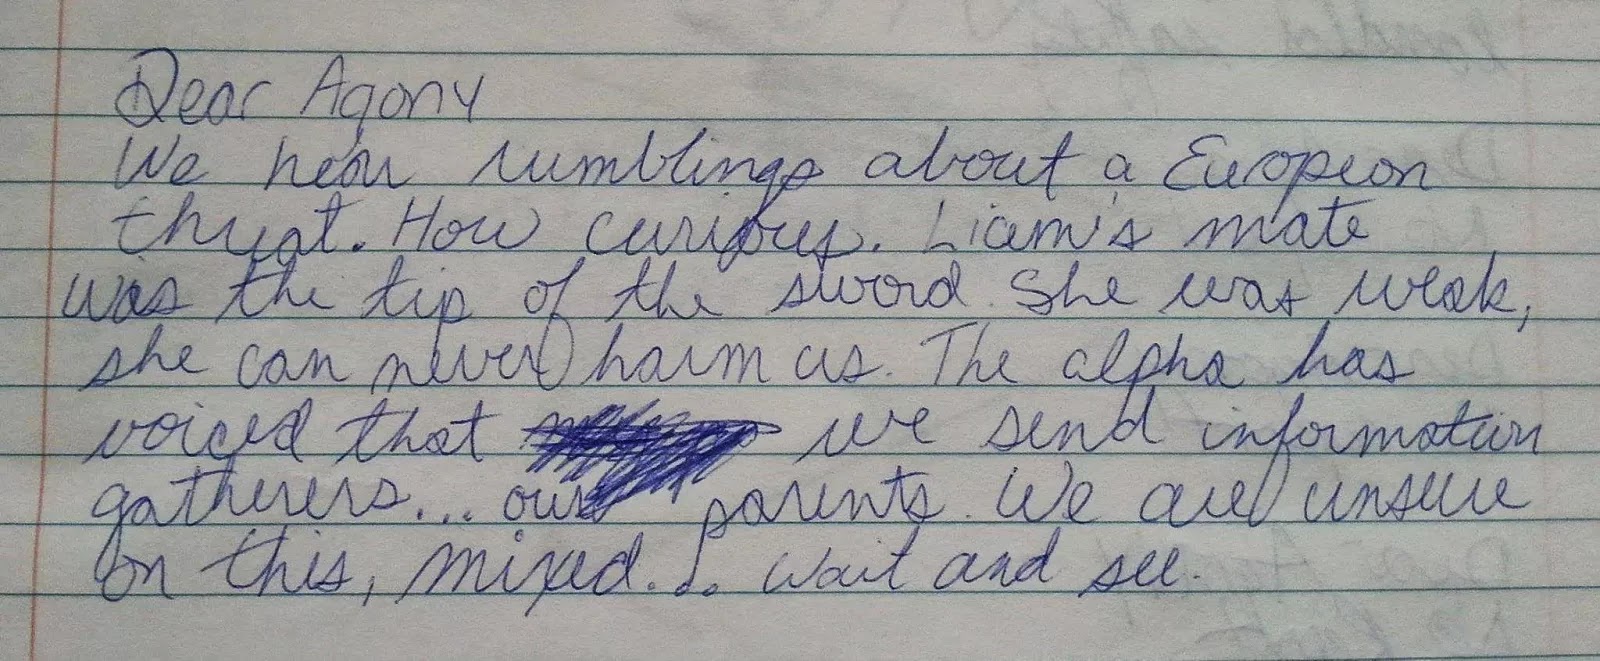 Dear Agony
We hear rumblings about a European
threat. How curious. Liam's mate
was the tip of the sword. She was weak,
she can never harm us. The alpha has
voiced that we send information
gatherers... our parents. We are unsure
on this, mixed... Wait and see.